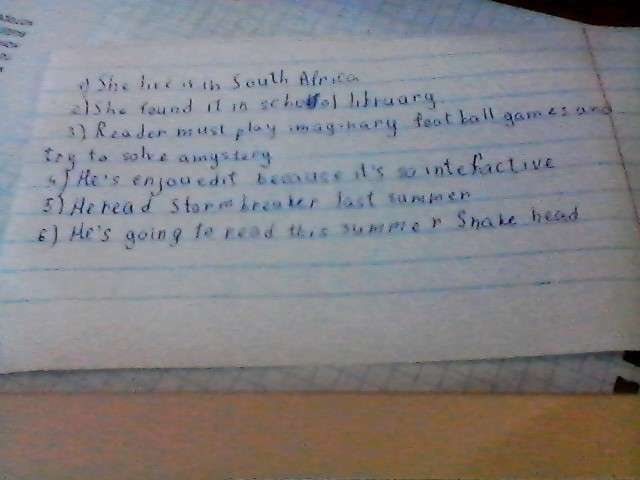 1) She live is in South Africa
2) She found it in school libruary
3) Reader must play imaginary football games and
try to solve amystery
4) He's enjouedit because it's so intefactive
5) Heread Stormbreaker last summer
6) He's going to read this summer Snake head